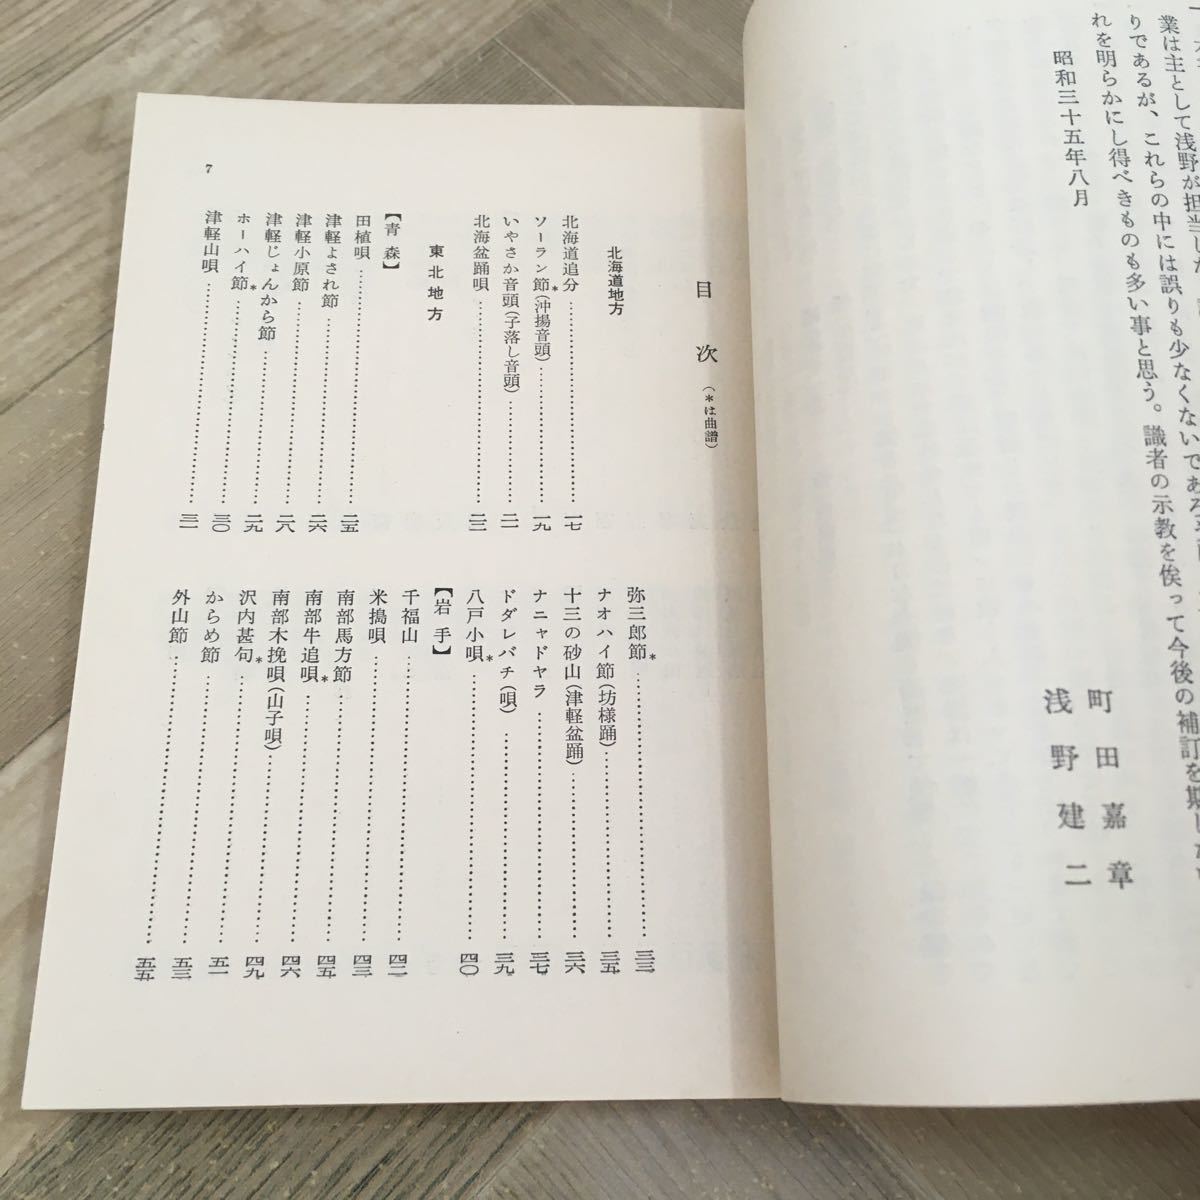 業は主として浅野が担当した
りであるが、これらの中には誤りも少なくないであろう
れを明らかにし得べきものも多い事と思う。識者の示教を俟って今後の補訂を期したい
昭和三十五年八月
町田嘉章
浅野建二
目次(*は曲譜)
北海道地方
北海道追分……一七
ソーラン節*(沖揚音頭)……一九
いやさか音頭(子落し音頭)……二一
北海盆踊唄……二三
東北地方
【青森】
田植唄……二五
津軽よされ節……二六
津軽小原節……二六
津軽じょんから節……二八
ホーハイ節*……三〇
津軽山唄……三一
弥三郎節*……三三
ナオハイ節(坊様踊)……三五
十三の砂山(津軽盆踊)……三六
ナニャドヤラ……三七
ドダレバチ(唄)……三九
八戸小唄*……四〇
【岩手】
千福山……四二
米搗唄……四三
南部馬方節……四五
南部牛追唄*……四六
南部木挽唄(山子唄)……四九
沢内甚句*……五一
からめ節……五三
外山節……五五
7